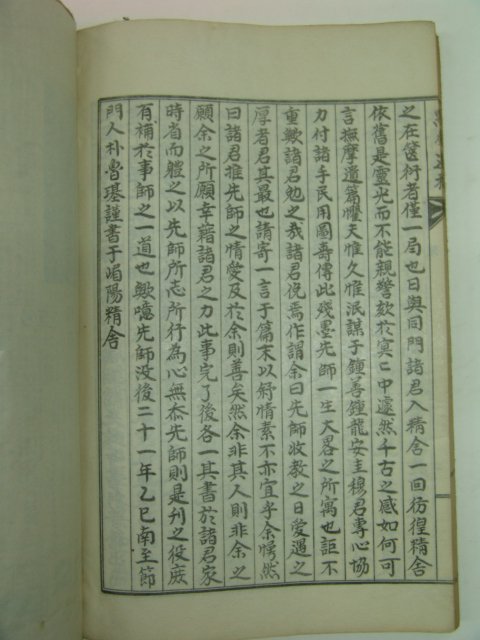 之在篋衍者僅一局也日與同門諸君入精舍一回彷徨精舍
依舊是靈光而不能親謦欬於冥〻中遽然千古之感如何可
言撫摩遺篇懼天惟久惟泯謀于鍾善鍾龍安圭穆君專心協
力付諸手民用圖壽傳此殘墨先師一生大畧之所寓也詎不
重歟諸君勉之哉諸君俛焉作謂余曰先師收教之日愛遇之
厚者君其最也請寄一言于篇末以舒情素不亦宜乎余愯然
曰諸君推先師之情愛及於余則善矣然余非其人則非余之
願余之所願幸藉諸君之力此事完了後各一其書於諸君家
時省而體之以先師所志所行為心無忝先師則是刊之役庶
有補於事師之一道也歟噫先師沒後二十一年乙巳南至節
門人朴魯堪謹書于嵋陽精舍